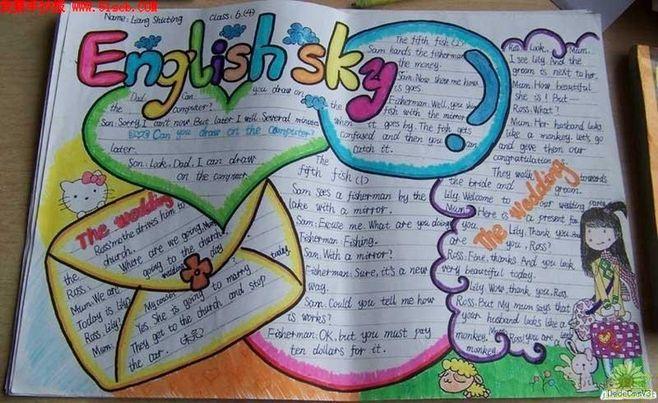 www.51scb.com
Name: Liang Shuting Class: 6.(4)
English sky
Dad. Can you draw on
the computer?
Son: Sorry. I can't now. But later I will. Several minutes
later.
Can you draw on the computer?
Son: Look. Dad. I can draw
on the computer.
The fifth fish (2)
Sam hands the fisherman
the money.
Sam: Now show me how
is goes
Fisherman: Well, you show
the fish with the mirror
when it goes by. The fish gets
confused and then you can
catch it.
The
fifth fish (1)
Sam sees a fisherman by the
lake with a mirror.
Sam: Excuse me. What are you doing?
Fisherman: Fishing.
Sam: With a mirror?
Fisherman: Sure, it's a new
way.
Sam: Could you tell me how
is works?
Fisherman: OK, but you must pay
ten dollars for it.
The wedding
Ross mother drives him to
the church.
Ross: Where are we going, Mum?
Mum: We are going to the church.
Today is Lily wedding day
Ross: Lily!
Mum: Yes. She is going to marry today.
They get to the church and stop
the car.
The wedding
Look, Mum.
I see Lily. And the
groom is next to her.
Mum: How beautiful
she is! But—
Ross: What?
Mum: Her husband looks
like a monkey. Let's go
and give them our
congratulation
They walk towards
the bride and groom.
Lily: Welcome to our wedding party
Mum: Here is a present for
you, Lily.
Lily: Thank you. How
are you, Ross?
Ross: Fine, thanks. And you look
very beautiful today.
Lily: Wow, thank you, Ross.
Ross: But my mum says that
your husband looks like a
monkey.
DedeCmsV3